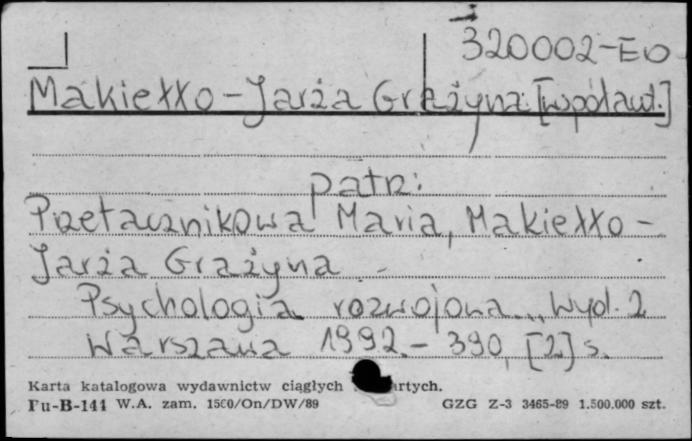 320002-E0
Makiełło-Jarża Grażyna [współaut.]
patrz:
Przetacznikowa Maria, Makiełło-
Jarża Grażyna
Psychologia rozwojowa... Wyd. 2
Warszawa 1992. - 390, [2] s.
Karta katalogowa wydawnictw ciągłych
Pu-B-144 W.A. zam. 1500/On/DW/89 GZG Z-3 3465-89 1.500.000 szt.